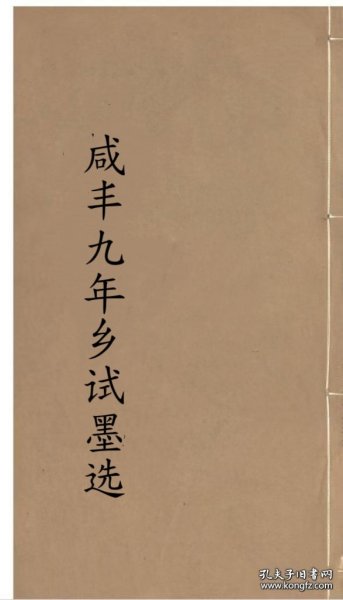 咸丰九年乡试墨选
孔夫子旧书网
www.kongfz.com